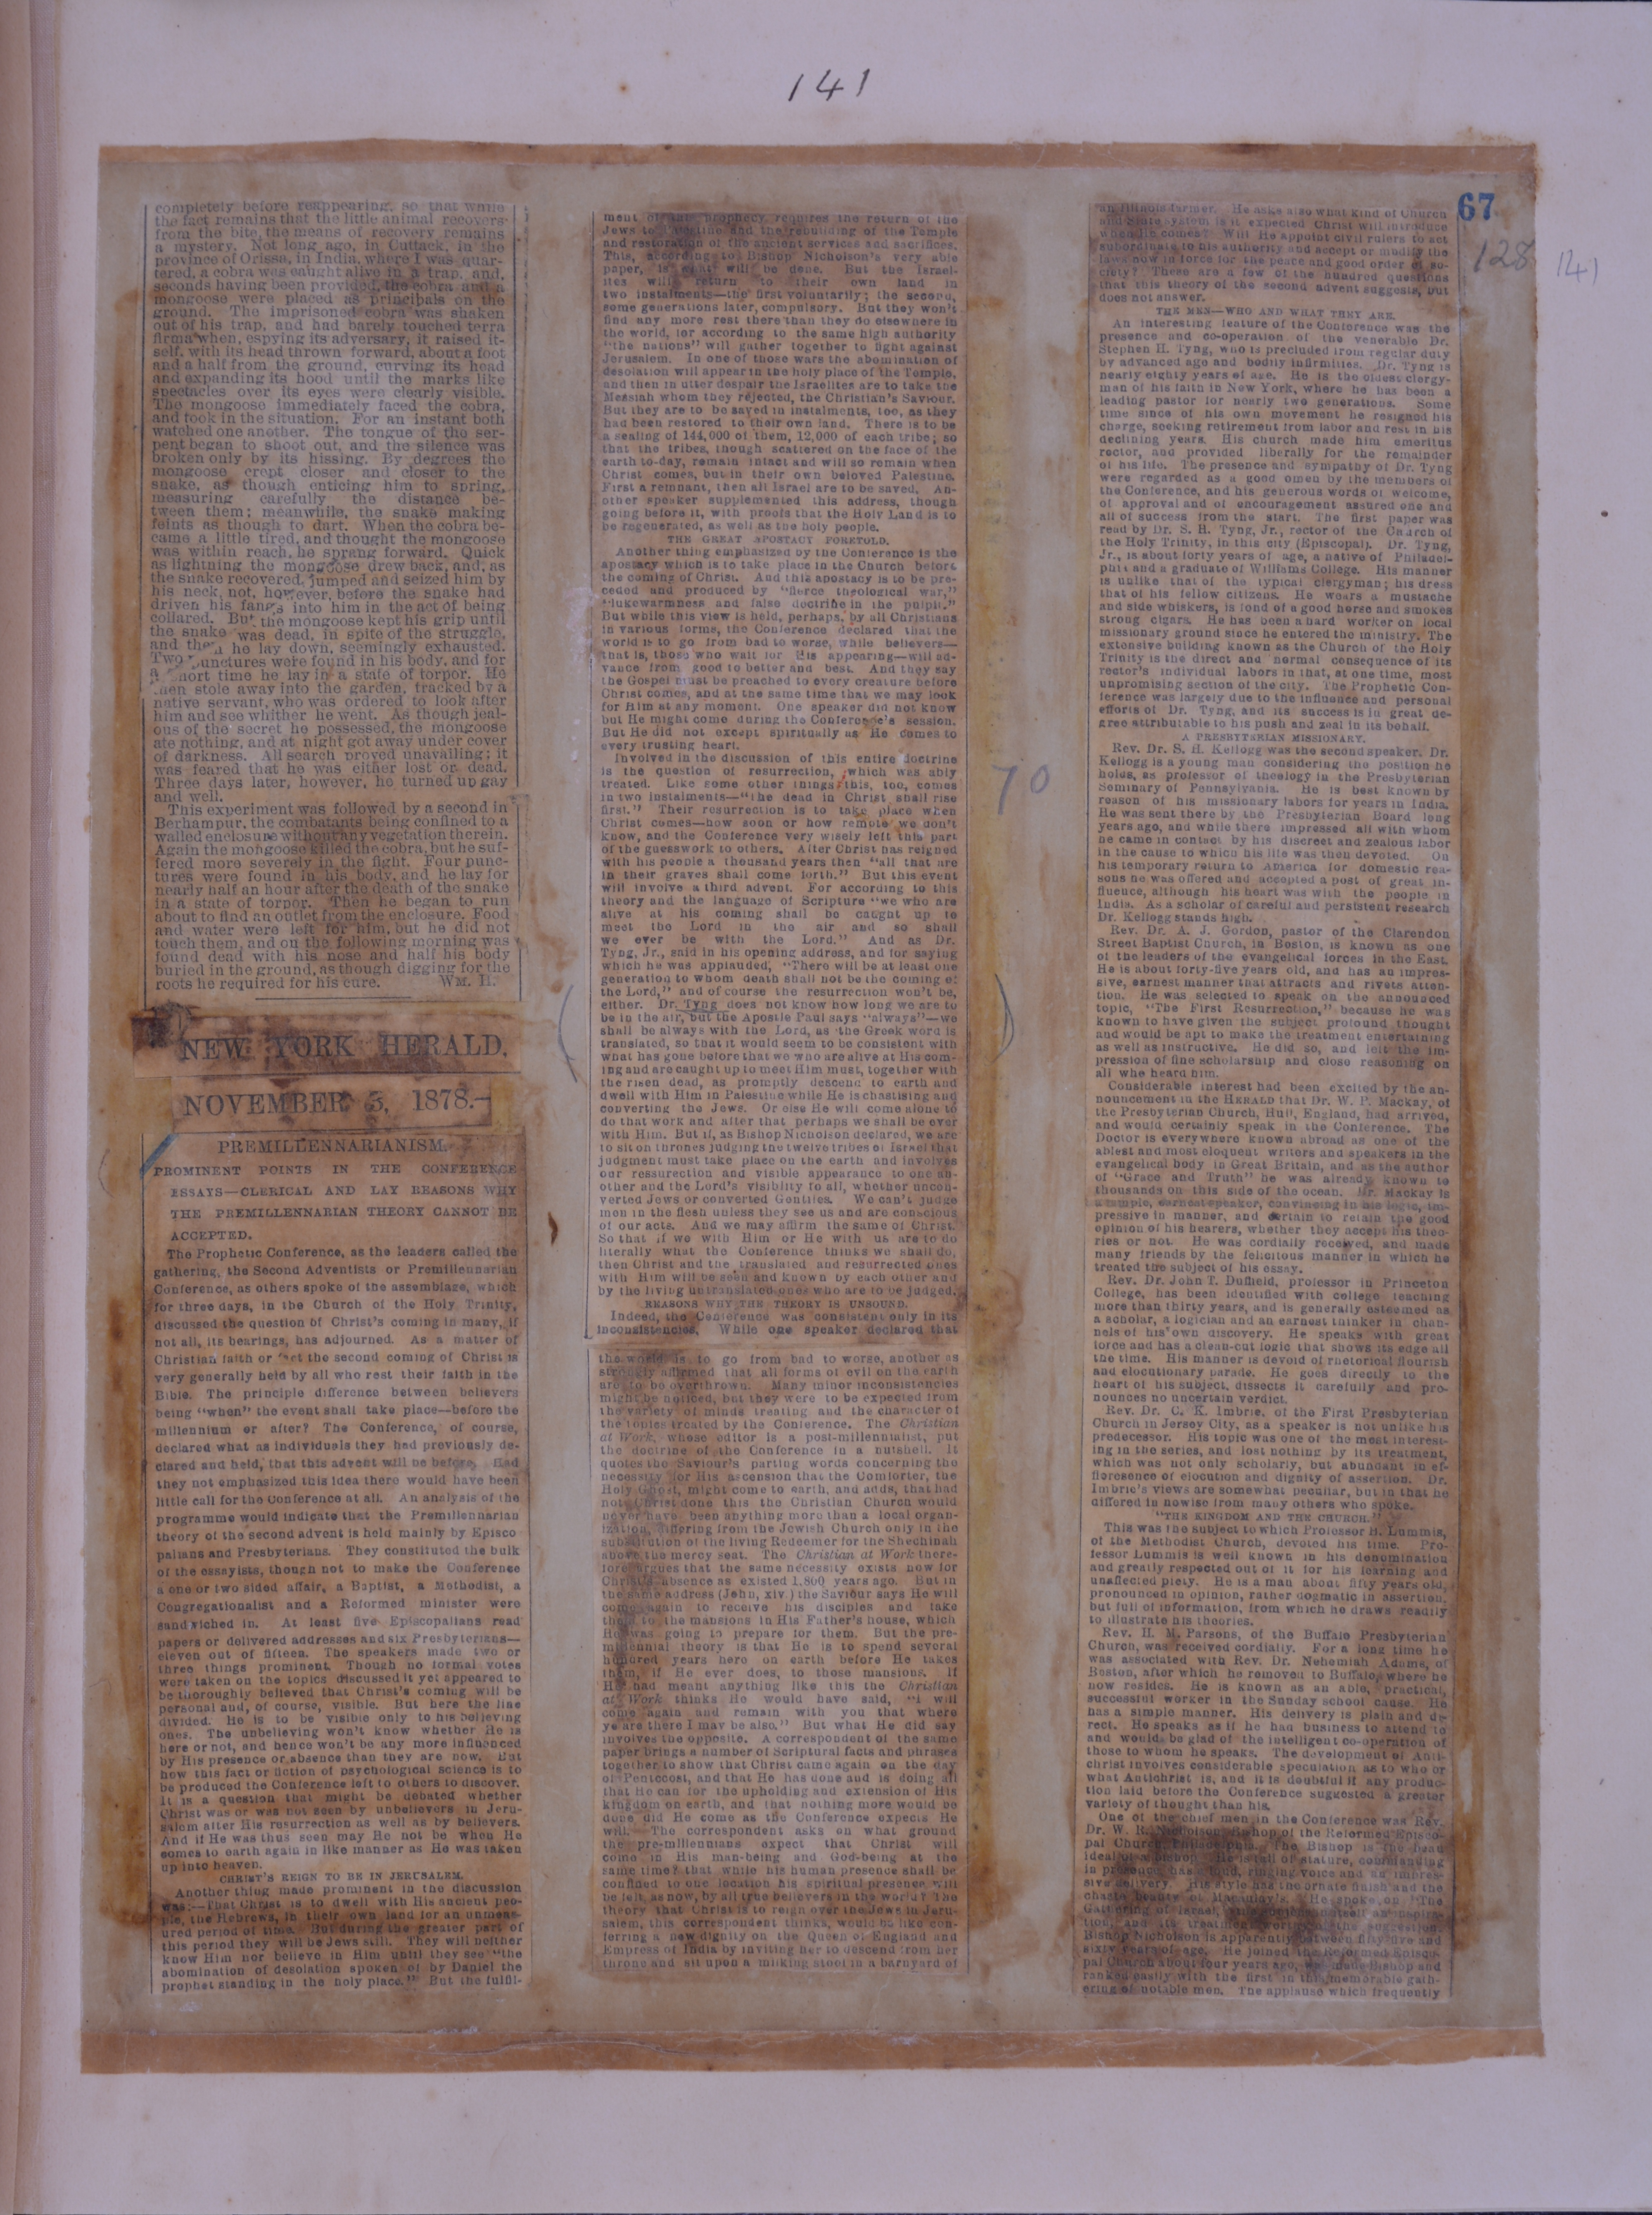 141
67
128 141
completely before reappearing, so that while
the fact remains that the little animal recovers
from the bite, the means of recovery remains
a mystery. Not long ago, in Cuttack, in the
province of Orissa, in India, where I was quar-
tered, a cobra was caught alive in a trap, and,
seconds having been provided, the cobra and a
mongoose were placed as principals on the
ground. The imprisoned cobra was shaken
out of his trap, and had barely touched terra
firma when, espying its adversary, it raised it-
self, with its head thrown forward, about a foot
and a half from the ground, curving its head
and expanding its hood until the marks like
spectacles over its eyes were clearly visible.
The mongoose immediately faced the cobra,
and took in the situation. For an instant both
watched one another. The tongue of the ser-
pent began to shoot out, and the silence was
broken only by its hissing. By degrees the
mongoose crept closer and closer to the
snake, as though enticing him to spring,
measuring carefully the distance be-
tween them; meanwhile, the snake making
feints as though to dart. When the cobra be-
came a little tired, and thought the mongoose
was within reach, he sprang forward. Quick
as lightning the mongoose drew back, and, as
the snake recovered, jumped and seized him by
his neck, not, however, before the snake had
driven his fangs into him in the act of being
collared. But the mongoose kept his grip until
the snake was dead, in spite of the struggle,
and then he lay down, seemingly exhausted.
Two punctures were found in his body, and for
a short time he lay in a state of torpor. He
then stole away into the garden, tracked by a
native servant, who was ordered to look after
him and see whither he went. As though jeal-
ous of the secret he possessed, the mongoose
ate nothing, and at night got away under cover
of darkness. All search proved unavailing; it
was feared that he was either lost or dead.
Three days later, however, he turned up gay
and well.
This experiment was followed by a second in
Berhampur, the combatants being confined to a
walled enclosure without any vegetation therein.
Again the mongoose killed the cobra, but he suf-
fered more severely in the fight. Four punc-
tures were found in his body, and he lay for
nearly half an hour after the death of the snake
in a state of torpor. Then he began to run
about to find an outlet from the enclosure. Food
and water were left for him, but he did not
touch them, and on the following morning was
found dead with his nose and half his body
buried in the ground, as though digging for the
roots he required for his cure. WM. H.
NEW YORK HERALD.
NOVEMBER 5, 1878.—
PREMILLENNARIANISM.
PROMINENT POINTS IN THE CONFERENCE
ESSAYS—CLERICAL AND LAY REASONS WHY
THE PREMILLENNARIAN THEORY CANNOT BE
ACCEPTED.
The Prophetic Conference, as the leaders called the
gathering, the Second Adventists or Premillennarian
Conference, as others spoke of the assemblage, which
for three days, in the Church of the Holy Trinity,
discussed the question of Christ's coming in many, if
not all, its bearings, has adjourned. As a matter of
Christian faith or fact the second coming of Christ is
very generally held by all who rest their faith in the
Bible. The principle difference between believers
being "when" the event shall take place—before the
millennium or after? The Conference, of course,
declared what as individuals they had previously de-
clared and held, that this advent will be before. Had
they not emphasized this idea there would have been
little call for the Conference at all. An analysis of the
programme would indicate that the Premillennarian
theory of the second advent is held mainly by Episco
palians and Presbyterians. They constituted the bulk
of the essayists, though not to make the Conference
a one or two sided affair, a Baptist, a Methodist, a
Congregationalist and a Reformed minister were
sandwiched in. At least five Episcopalians read
papers or delivered addresses and six Presbyterians—
eleven out of fifteen. The speakers made two or
three things prominent. Though no formal votes
were taken on the topics discussed it yet appeared to
be thoroughly believed that Christ's coming will be
personal and, of course, visible. But here the line
divided. He is to be visible only to his believing
ones. The unbelieving won't know whether He is
here or not, and hence won't be any more influenced
by His presence or absence than they are now. But
how this fact or fiction of psychological science is to
be produced the Conference left to others to discover.
It is a question that might be debated whether
Christ was or was not seen by unbelievers in Jeru-
salem after His resurrection as well as by believers.
And if He was thus seen may He not be when He
comes to earth again in like manner as He was taken
up into heaven.
CHRIST'S REIGN TO BE IN JERUSALEM.
Another thing made prominent in the discussion
was:—That Christ is to dwell with His ancient peo-
ple, the Hebrews, in their own land for an unmeas-
ured period of time. But during the greater part of
this period they will be Jews still. They will neither
know Him nor believe in Him until they see "the
abomination of desolation spoken of by Daniel the
prophet standing in the holy place." But the fulfil-
ment of this prophecy requires the return of the
Jews to Palestine and the rebuilding of the Temple
and restoration of the ancient services and sacrifices.
This, according to Bishop Nicholson's very able
paper, is what will be done. But the Israel-
ites will return to their own land in
two instalments—the first voluntarily; the second,
some generations later, compulsory. But they won't
find any more rest there than they do elsewhere in
the world, for according to the same high authority
"the nations" will gather together to fight against
Jerusalem. In one of those wars the abomination of
desolation will appear in the holy place of the Temple,
and then in utter despair the Israelites are to take the
Messiah whom they rejected, the Christian's Saviour.
But they are to be saved in instalments, too, as they
had been restored to their own land. There is to be
a sealing of 144,000 of them, 12,000 of each tribe; so
that the tribes, though scattered on the face of the
earth to-day, remain intact and will so remain when
Christ comes, but in their own beloved Palestine.
First a remnant, then all Israel are to be saved. An-
other speaker supplemented this address, though
going before it, with proofs that the Holy Land is to
be regenerated, as well as the holy people.
THE GREAT APOSTACY FORETOLD.
Another thing emphasized by the Conference is the
apostacy which is to take place in the Church before
the coming of Christ. And this apostacy is to be pre-
ceded and produced by "fierce theological war,"
"lukewarmness and false doctrine in the pulpit."
But while this view is held, perhaps, by all Christians
in various forms, the Conference declared that the
world is to go from bad to worse, while believers—
that is, those who wait for His appearing—will ad-
vance from good to better and best. And they say
the Gospel must be preached to every creature before
Christ comes, and at the same time that we may look
for Him at any moment. One speaker did not know
but He might come during the Conference's session.
But He did not except spiritually as He comes to
every trusting heart.
Involved in the discussion of this entire doctrine
is the question of resurrection, which was ably
treated. Like some other things this, too, comes
in two instalments—"the dead in Christ shall rise
first." Their resurrection is to take place when
Christ comes—how soon or how remote we don't
know, and the Conference very wisely left this part
of the guesswork to others. After Christ has reigned
with his people a thousand years then "all that are
in their graves shall come forth." But this event
will involve a third advent. For according to this
theory and the language of Scripture "we who are
alive at his coming shall be caught up to
meet the Lord in the air and so shall
we ever be with the Lord." And as Dr.
Tyng, Jr., said in his opening address, and for saying
which he was applauded, "There will be at least one
generation to whom death shall not be the coming of
the Lord," and of course the resurrection won't be,
either. Dr. Tyng does not know how long we are to
be in the air, but the Apostle Paul says "always"—we
shall be always with the Lord, as the Greek word is
translated, so that it would seem to be consistent with
what has gone before that we who are alive at His com-
ing and are caught up to meet Him must, together with
the risen dead, as promptly descend to earth and
dwell with Him in Palestine while He is chastising and
converting the Jews. Or else He will come alone to
do that work and after that perhaps we shall be ever
with Him. But if, as Bishop Nicholson declared, we are
to sit on thrones judging the twelve tribes of Israel that
judgment must take place on the earth and involves
our ressurection and visible appearance to one an-
other and the Lord's visibility to all, whether uncon-
verted Jews or converted Gentiles. We can't judge
men in the flesh unless they see us and are conscious
of our acts. And we may affirm the same of Christ.
So that if we with Him or He with us are to do
literally what the Conference thinks we shall do,
then Christ and the translated and resurrected ones
with Him will be seen and known by each other and
by the living untranslated ones who are to be judged.
REASONS WHY THE THEORY IS UNSOUND.
Indeed, the Conference was consistent only in its
inconsistencies. While one speaker declared that
the world is to go from bad to worse, another as
strongly affirmed that all forms of evil on the earth
are to be overthrown. Many minor inconsistencies
might be noticed, but they were to be expected from
the variety of minds treating and the character of
the topics treated by the Conference. The Christian
at Work, whose editor is a post-millennialist, put
the doctrine of the Conference in a nutshell. It
quotes the Saviour's parting words concerning the
necessity for His ascension that the Comforter, the
Holy Ghost, might come to earth, and adds, that had
not Christ done this the Christian Church would
never have been anything more than a local organ-
ization, differing from the Jewish Church only in the
substitution of the living Redeemer for the Shechinah
above the mercy seat. The Christian at Work there-
fore argues that the same necessity exists now for
Christ's absence as existed 1,800 years ago. But in
the same address (John, xiv.) the Saviour says He will
come again to receive his disciples and take
them to the mansions in His Father's house, which
He was going to prepare for them. But the pre-
millennial theory is that He is to spend several
hundred years here on earth before He takes
them, if He ever does, to those mansions. If
He had meant anything like this the Christian
at Work thinks He would have said, "I will
come again and remain with you that where
ye are there I may be also." But what He did say
involves the opposite. A correspondent of the same
paper brings a number of Scriptural facts and phrases
together to show that Christ came again on the day
of Pentecost, and that He has done and is doing all
that He can for the upholding and extension of His
kingdom on earth, and that nothing more would be
done did He come as the Conference expects He
will. The correspondent asks on what ground
the pre-millennians expect that Christ will
come in His man-being and God-being at the
same time? that while his human presence shall be
confined to one location his spiritual presence will
be felt, as now, by all true believers in the world? The
theory that Christ is to reign over the Jews in Jeru-
salem, this correspondent thinks, would be like con-
ferring a new dignity on the Queen of England and
Empress of India by inviting her to descend from her
throne and sit upon a milking stool in a barnyard of
70
an Illinois farmer. He asks also what kind of Church
and State system is it expected Christ will introduce
when He comes? Will He appoint civil rulers to act
subordinate to his authority and accept or modify the
laws now in force for the peace and good order of so-
ciety? These are a few of the hundred questions
that this theory of the second advent suggests, but
does not answer.
THE MEN—WHO AND WHAT THEY ARE.
An interesting feature of the Conference was the
presence and co-operation of the venerable Dr.
Stephen H. Tyng, who is precluded from regular duty
by advanced age and bodily infirmities. Dr. Tyng is
nearly eighty years of age. He is the oldest clergy-
man of his faith in New York, where he has been a
leading pastor for nearly two generations. Some
time since of his own movement he resigned his
charge, seeking retirement from labor and rest in his
declining years. His church made him emeritus
rector, and provided liberally for the remainder
of his life. The presence and sympathy of Dr. Tyng
were regarded as a good omen by the members of
the Conference, and his generous words of welcome,
of approval and of encouragement assured one and
all of success from the start. The first paper was
read by Dr. S. H. Tyng, Jr., rector of the Church of
the Holy Trinity, in this city (Episcopal). Dr. Tyng,
Jr., is about forty years of age, a native of Philadel-
phia and a graduate of Williams College. His manner
is unlike that of the typical clergyman; his dress
that of his fellow citizens. He wears a mustache
and side whiskers, is fond of a good horse and smokes
strong cigars. He has been a hard worker on local
missionary ground since he entered the ministry. The
extensive building known as the Church of the Holy
Trinity is the direct and normal consequence of its
rector's individual labors in that, at one time, most
unpromising section of the city. The Prophetic Con-
ference was largely due to the influence and personal
efforts of Dr. Tyng, and its success is in great de-
gree attributable to his push and zeal in its behalf.
A PRESBYTERIAN MISSIONARY.
Rev. Dr. S. H. Kellogg was the second speaker. Dr.
Kellogg is a young man considering the position he
holds, as professor of theology in the Presbyterian
Seminary of Pennsylvania. He is best known by
reason of his missionary labors for years in India.
He was sent there by the Presbyterian Board long
years ago, and while there impressed all with whom
he came in contact by his discreet and zealous labor
in the cause to which his life was then devoted. On
his temporary return to America for domestic rea-
sons he was offered and accepted a post of great in-
fluence, although his heart was with the people in
India. As a scholar of careful and persistent research
Dr. Kellogg stands high.
Rev. Dr. A. J. Gordon, pastor of the Clarendon
Street Baptist Church, in Boston, is known as one
of the leaders of the evangelical forces in the East.
He is about forty-five years old, and has an impres-
sive, earnest manner that attracts and rivets atten-
tion. He was selected to speak on the announced
topic, "The First Resurrection," because he was
known to have given the subject profound thought
and would be apt to make the treatment entertaining
as well as instructive. He did so, and left the im-
pression of fine scholarship and close reasoning on
all who heard him.
Considerable interest had been excited by the an-
nouncement in the HERALD that Dr. W. P. Mackay, of
the Presbyterian Church, Hull, England, had arrived,
and would certainly speak in the Conference. The
Doctor is everywhere known abroad as one of the
ablest and most eloquent writers and speakers in the
evangelical body in Great Britain, and as the author
of "Grace and Truth" he was already known to
thousands on this side of the ocean. Mr. Mackay is
a simple, earnest speaker, convincing in his logic, im-
pressive in manner, and certain to retain the good
opinion of his hearers, whether they accept his theo-
ries or not. He was cordially received, and made
many friends by the felicitous manner in which he
treated the subject of his essay.
Rev. Dr. John T. Duffield, professor in Princeton
College, has been identified with college teaching
more than thirty years, and is generally esteemed as
a scholar, a logician and an earnest thinker in chan-
nels of his own discovery. He speaks with great
force and has a clean-cut logic that shows its edge all
the time. His manner is devoid of rhetorical flourish
and elocutionary parade. He goes directly to the
heart of his subject, dissects it carefully and pro-
nounces no uncertain verdict.
Rev. Dr. C. K. Imbrie, of the First Presbyterian
Church in Jersey City, as a speaker is not unlike his
predecessor. His topic was one of the most interest-
ing in the series, and lost nothing by its treatment,
which was not only scholarly, but abundant in ef-
floresence of elocution and dignity of assertion. Dr.
Imbrie's views are somewhat peculiar, but in that he
differed in nowise from many others who spoke.
"THE KINGDOM AND THE CHURCH."
This was the subject to which Professor H. Lummis,
of the Methodist Church, devoted his time. Pro-
fessor Lummis is well known in his denomination
and greatly respected out of it for his learning and
unaffected piety. He is a man about fifty years old,
pronounced in opinion, rather dogmatic in assertion,
but full of information, from which he draws readily
to illustrate his theories.
Rev. H. M. Parsons, of the Buffalo Presbyterian
Church, was received cordially. For a long time he
was associated with Rev. Dr. Nehemiah Adams, of
Boston, after which he removed to Buffalo, where he
now resides. He is known as an able, practical,
successful worker in the Sunday school cause. He
has a simple manner. His delivery is plain and di-
rect. He speaks as if he had business to attend to
and would be glad of the intelligent co-operation of
those to whom he speaks. The development of Anti-
christ involves considerable speculation as to who or
what Antichrist is, and it is doubtful if any produc-
tion laid before the Conference suggested a greater
variety of thought than his.
One of the chief men in the Conference was Rev.
Dr. W. R. Nicholson, Bishop of the Reformed Episco-
pal Church, Philadelphia. The Bishop is the beau
ideal of a bishop. He is tall of stature, commanding
in presence, has a loud, ringing voice and an impres-
sive delivery. His style has the ornate finish and the
chaste beauty of Macaulay's. He spoke on "The
Gathering of Israel,
tion, and its treatment worthy of the suggestion.
Bishop Nicholson is apparently between fifty-five and
sixty years of age. He joined the Reformed Episco-
pal Church about four years ago, was made Bishop and
ranked easily with the first in this memorable gath-
ering of notable men. The applause which frequently